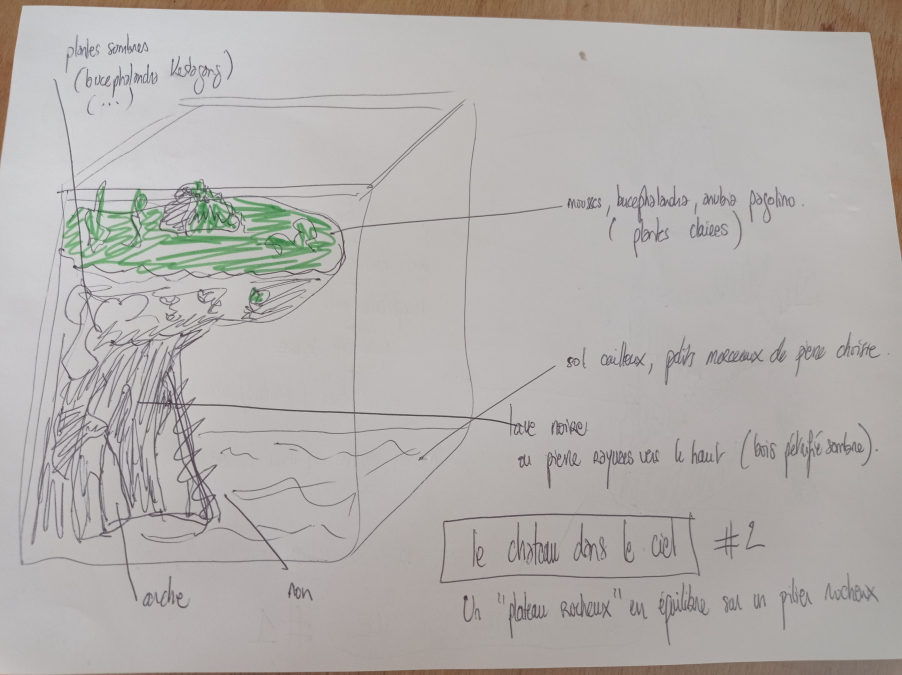 plantes sombres
(bucephalandra Kedagang)
(...)
mousses, bucephalandra, anubia pagolino.
(plantes claires)
sol cailloux, petits morceaux de pierre choisie.
lave noire
ou pierre rayures vers le haut (bois pétrifié sombre).
le chateau dans le ciel #2
Un "plateau rocheux" en équilibre sur un pilier rocheux
arche
non